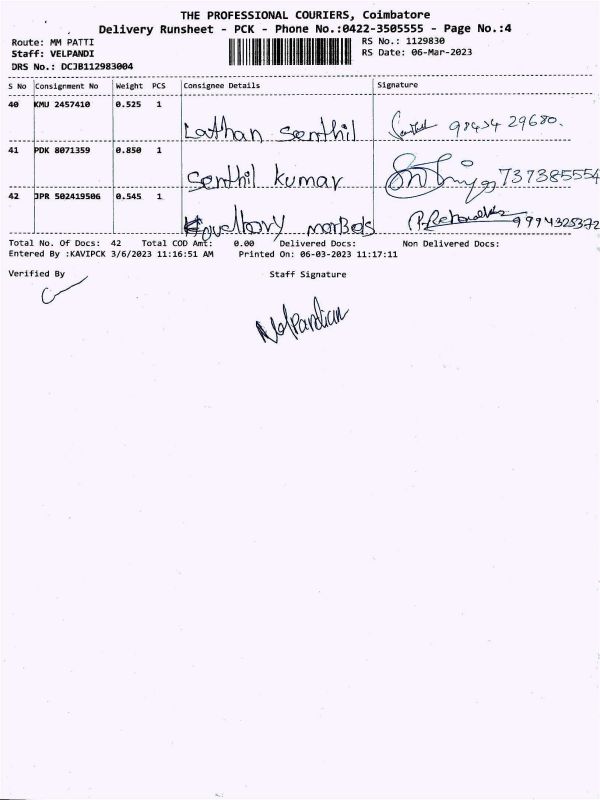 THE PROFESSIONAL COURIERS, Coimbatore
Delivery Runsheet - PCK - Phone No.:0422-3505555 - Page No.:4
Route: MM PATTI RS No.: 1129830
Staff: VELPANDI RS Date: 06-Mar-2023
DRS No.: DCJB112983004
S No Consignment No Weight PCS Consignee Details Signature
40 KMU 2457410 0.525 1
Lathan Senthil
41 PDK 8071359 0.850 1
Senthil kumar 737385554
42 JPR 502419506 0.545 1
9994325372
Total No. Of Docs: 42 Total COD Amt: 0.00 Delivered Docs: Non Delivered Docs:
Entered By :KAVIPCK 3/6/2023 11:16:51 AM Printed On: 06-03-2023 11:17:11
Verified By Staff Signature
Velpandian